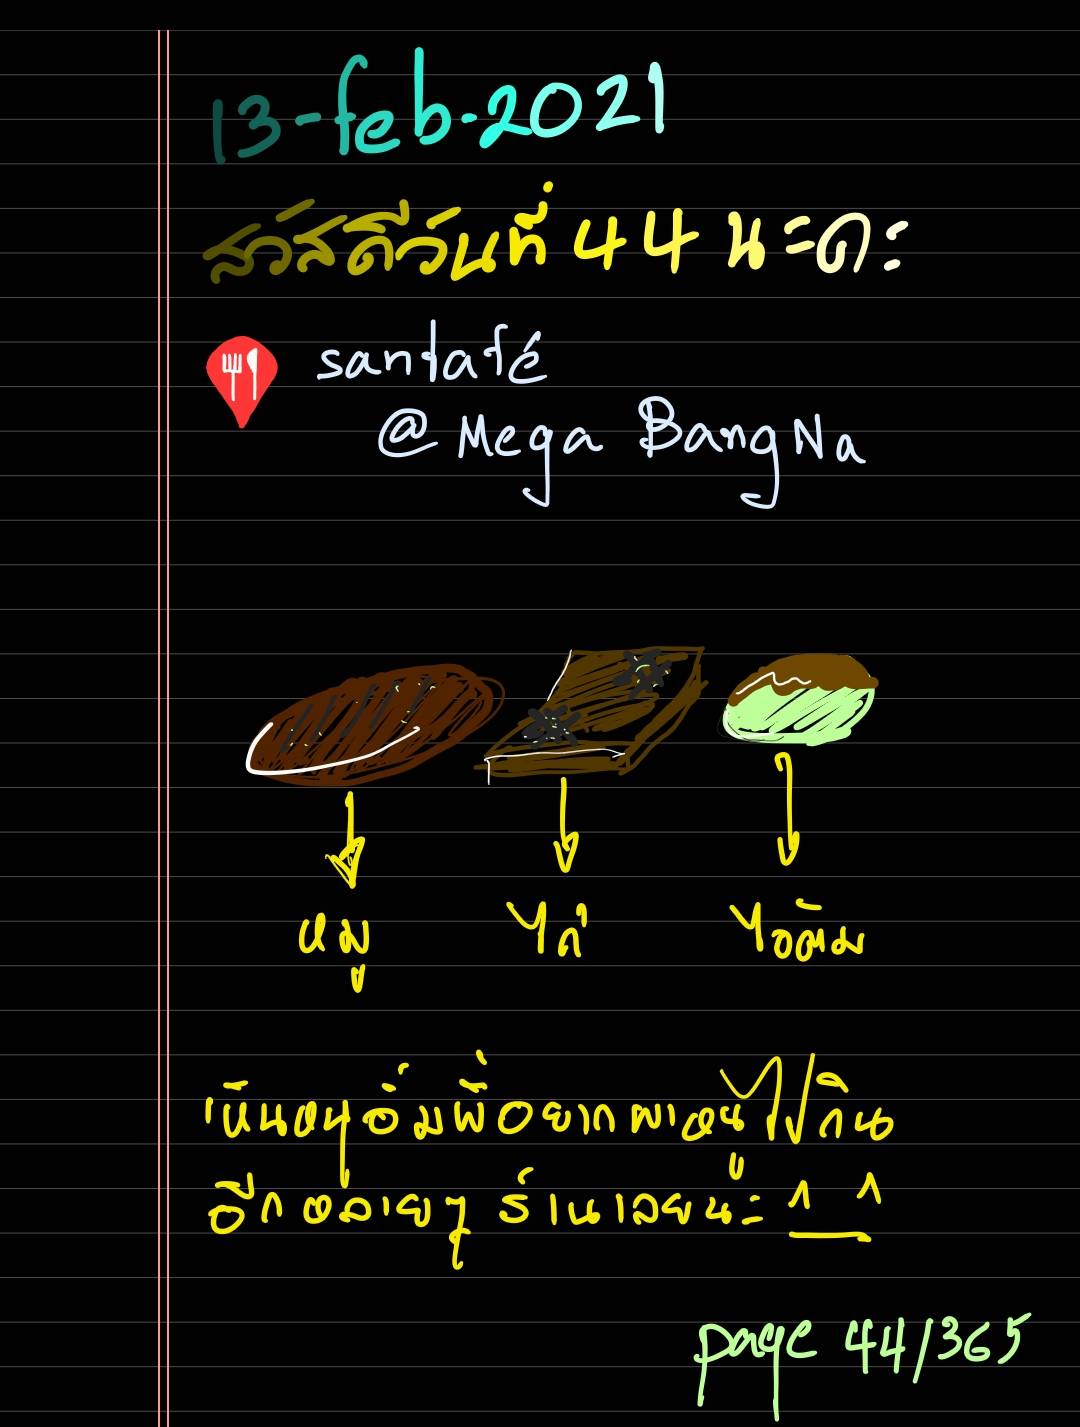 13-feb-2021
สวัสดีวันที่ 44 นะคะ
santafé
@ Mega BangNa
หมู ไก่ ไอติม
เห็นหนูอิ่มพี่อยากพาหนูไปกิน
อีกหลายๆ ร้านเลยนะ ^_^
page 44/365